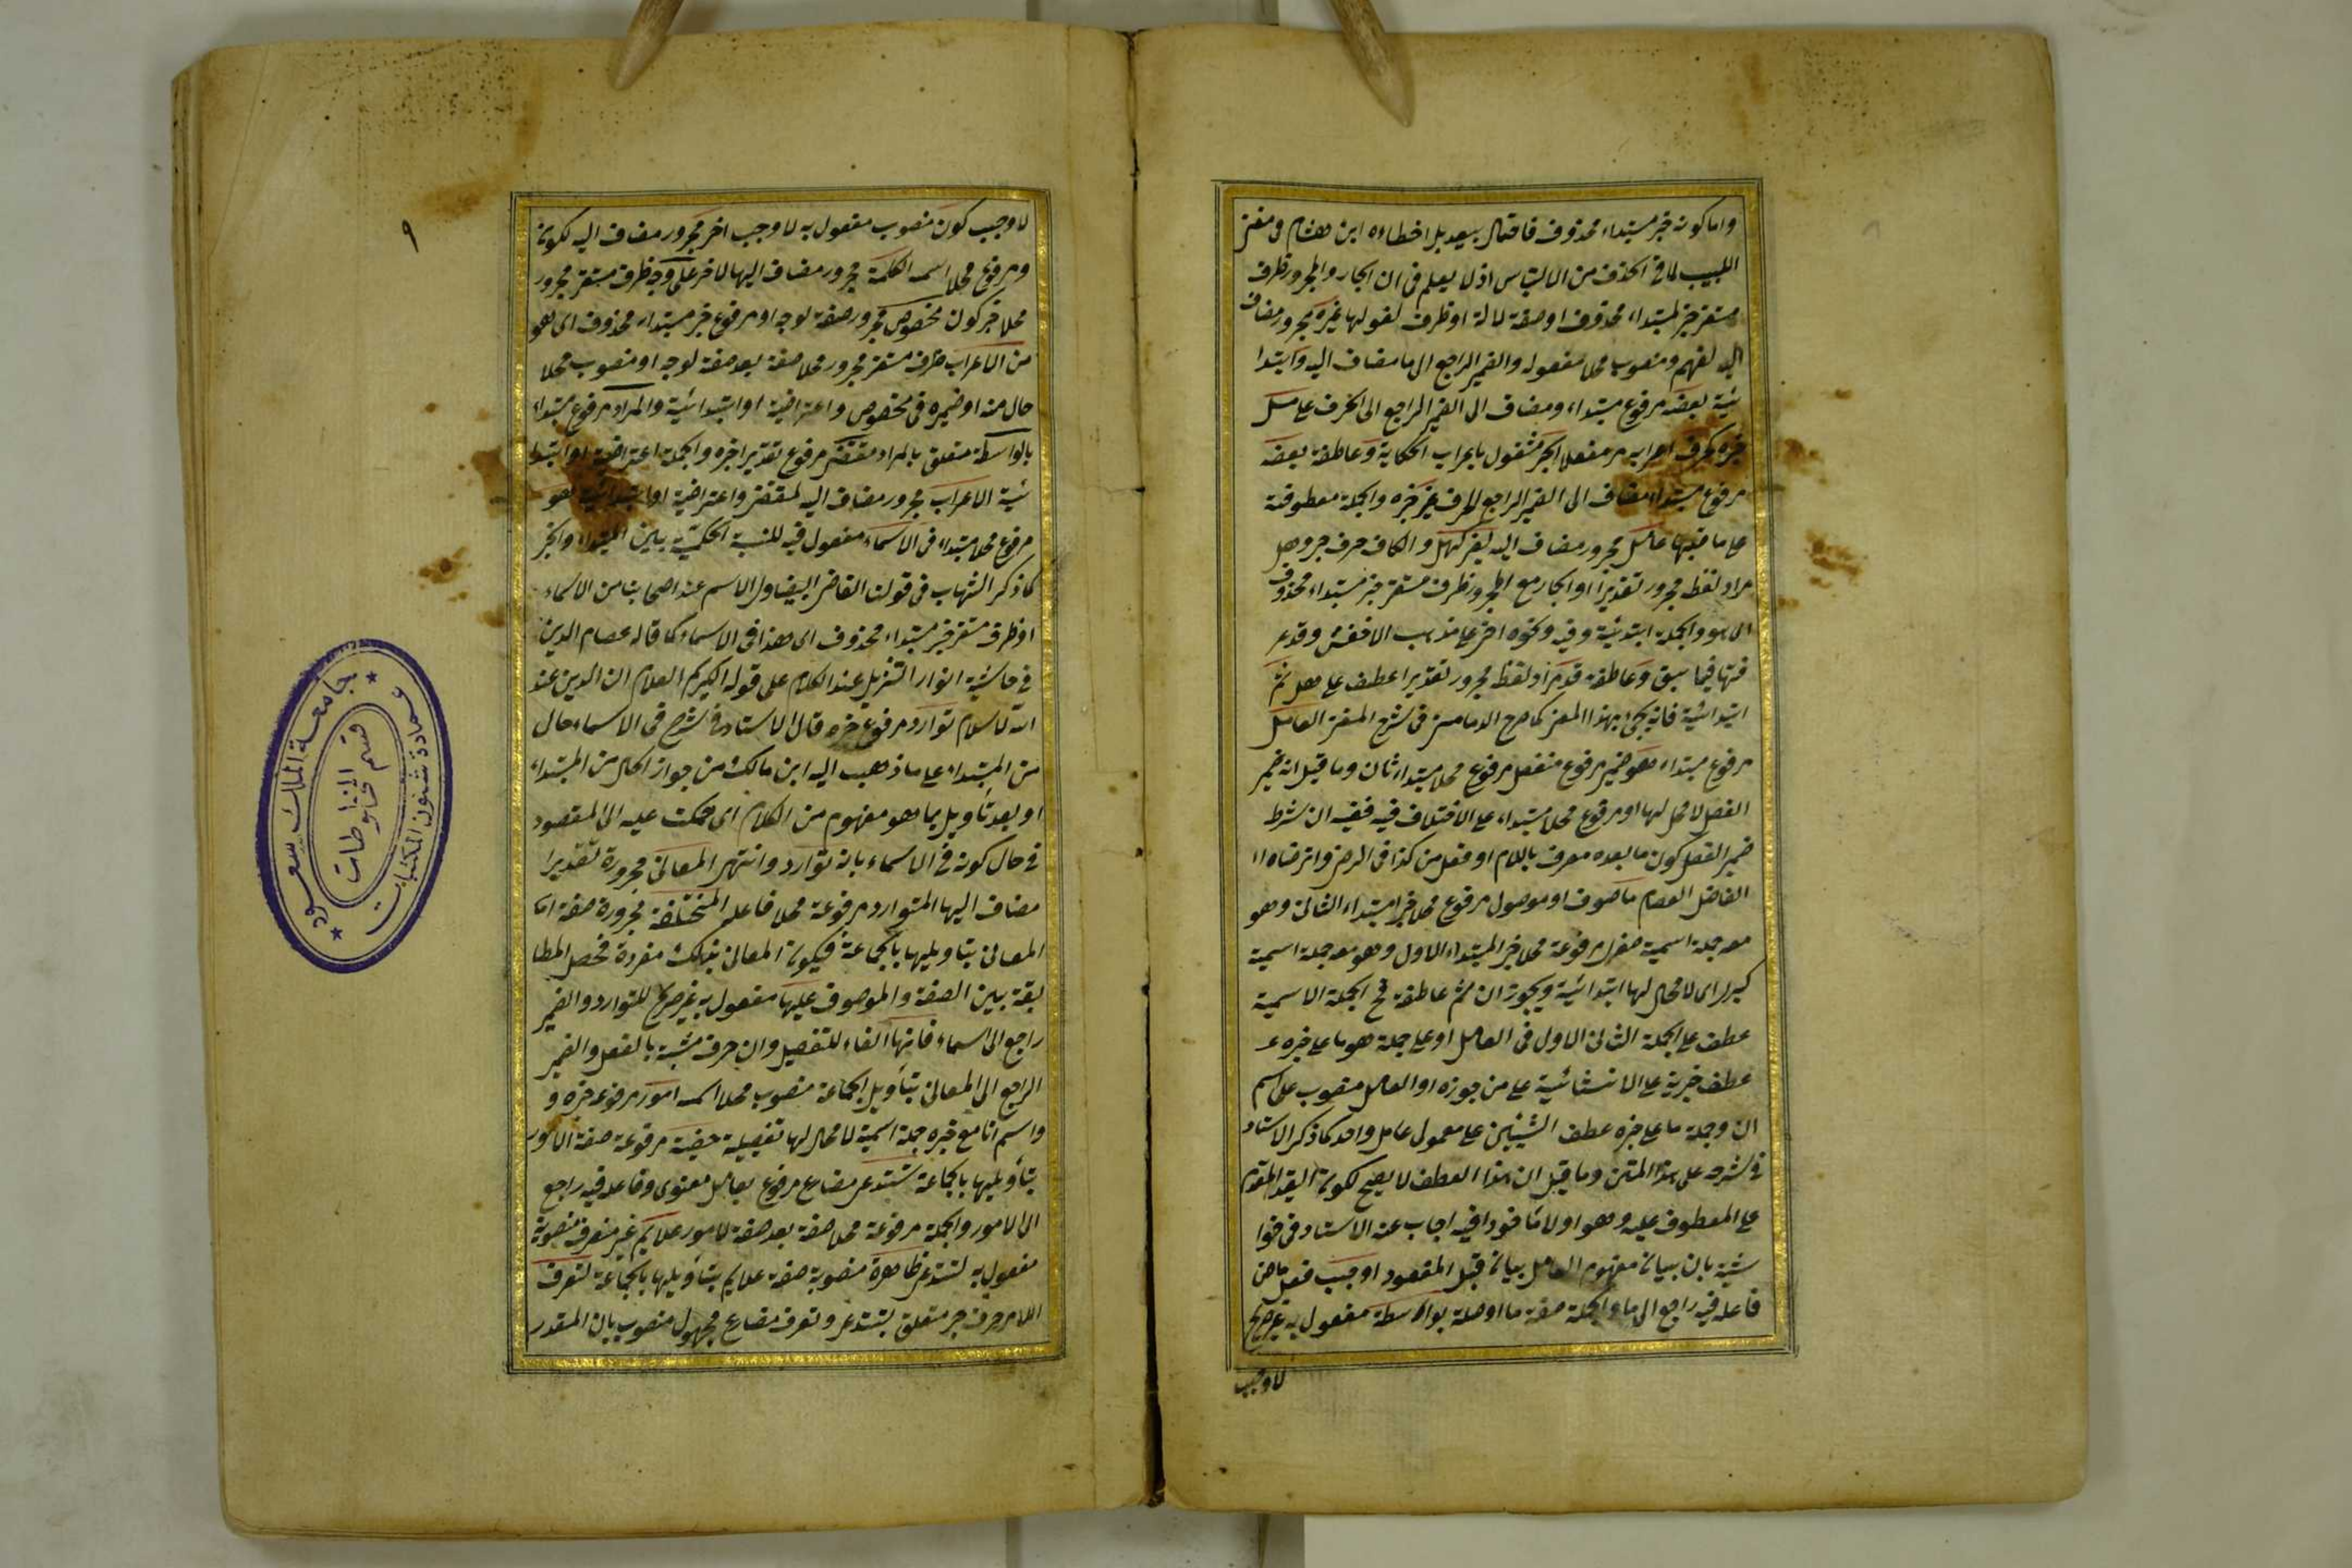 واما كونه خبر مبتداء محذوف فاحتمال بعيد بل اخطاءه ابن هشام فى مغنى
اللبيب لما فى الحذف من الالتباس اذ لا يعلم فى ان الجار والمجرور ظرف
مستقر خبر لمبتداء محذوف او صفة لما له او ظرف لغو لها غيره مجرور مضاف
اليه لفهم ومنصوب محلا مفعوله والضمير الراجع الى ما مضاف اليه وابتدا
ئية بعضه مرفوع مبتداء ومضاف الى الضمير الراجع الى الحرف على
خبره كحرف الجر مشغول باعراب الحكاية وعاطفة بعضه
مرفوع مبتداء مضاف الى الضمير الراجع للحرف غير خبره والجملة معطوفة
على ما قبلها عامل مجرور مضاف اليه لغير كهل والكاف حرف جر وهل
مراد لفظه مجرور تقديرا او الجار مع المجرور ظرف مستقر خبر مبتداء محذوف
اى هو والجملة ابتدائية وفيه وجوه اخر على مذهب الاخفش وقد عر
فتها فيما سبق وعاطفة قد مراد لفظه مجرور تقديرا عطف على هل ثم
ابتدائية فانه يجئ بهذا المعنى كما صرح الدمامينى فى شرح المغنى العامل
مرفوع مبتداء هو ضمير مرفوع منفصل مرفوع محلا مبتداء ثان وما قيل انه ضمير
الفصل لا محل لها او مرفوع محلا مبتداء على الاختلاف فيه ففيه ان شرط
ضمير الفصل كون ما بعده معرف باللام او افعل من كذا فى الرضى وارتضاه
الفاضل العصام ما موصوف او موصول مرفوع محلا خبر المبتداء الثانى وهو
معه جملة اسمية صغرى مرفوعة محلا خبر المبتداء الاول وهو معه جملة اسمية
كبرى لا محل لها ابتدائية ويجوز ان ثم عاطفة فح الجملة الاسمية
عطف على الجملة الثانى الاول فى العامل او على جملة هو ما على خبره
عطف خبرية على الانشائية على من جوزه او العامل منصوب على اسم
ان وجملة ما على خبره عطف الشيئين على معمولى عامل واحد كما ذكر الاستاد
فى شرحه على هذا المتن وما قيل ان هذا العطف لا يصح لكونه القيد المقدم
على المعطوف عليه وهو اولا مأخوذا فيه اجاب عنه الاستاد فى حوا
شيه بان بيانه مفهوم العامل بيانه قبل المقصود اوجب فعل ماض
فاعله فيه راجع الى ما والجملة صفة ما او صلة بواسطة مفعول به غير صريح
لاوجب
٩
لاوجب كون منصوب مفعول به لاوجب اخر مجرور مضاف اليه لكونه
ومرفوع محلا اسمه الكلمة مجرور مضاف اليها لاخر على وجه ظرف مستقر مجرور
محلا خبر كون مخصوص مجرور صفة لوجه او مرفوع خبر مبتداء محذوف اى هو
من الاعراب ظرف مستقر مجرور محلا صفة بعد صفة لوجه او منصوب محلا
حال منه او ضميره فى مخصوص واعتراضية او ابتدائية والمراد مرفوع مبتداء
بالواسطة متعلق بالمراد مقتضى مرفوع تقديرا خبره والجملة اعتراضية او ابتدا
ئية الاعراب مجرور مضاف اليه لمقتضى واعتراضية او ابتدائية هو
مرفوع محلا مبتداء فى الاسماء مفعول فيه للنسبة الحكمية بين المبتداء والخبر
كما ذكر الشهاب فى قولنا القاضى البيضاوى الاسم عند اصحابنا من الاسماء
او ظرف مستقر خبر مبتداء محذوف اى هذا فى الاسماء كما قاله عصام الدين
فى حاشية انوار التنزيل عند الكلام على قوله الكريم العلام ان الدين عند
الله الاسلام توارد مرفوع خبره قال الاستاد فى شرح فى الاسماء حال
من المبتداء على ما ذهب اليه ابن مالك من جواز الحال من المبتداء
او بعد تأويل بما هو مفهوم من الكلام اى حكمت عليه الى المقصود
فى حال كونه فى الاسماء بانه توارد وانتهى المعانى مجرورة تقديرا
مضاف اليها المتوارد مرفوعة محلا فاعله المختلفة مجرورة صفة اما
المعانى بتأويلها بالجماعة فيكون المعانى بذلك مفردة فحصل المطا
بقة بين الصفة والموصوف عليها مفعول به غير صريح للتوارد والضمير
راجع الى اسماء فانها الفاء للتفصيل وان حرف مشبه بالفعل والضمير
الراجع الى المعانى بتأويل الجماعة منصوب محلا اسمه امور مرفوعة خبره و
واسم ان مع خبره جملة اسمية لا محل لها تفصيلية خفية مرفوعة صفة الامور
بتأويلها بالجماعة تستدعى مضارع مرفوع بعامل معنوى وفاعله فيه راجع
الى الامور والجملة مرفوعة محلا صفة بعد صفة لامور علائم غير منصرف منصوبة
مفعول به لتستدعى ظاهرة منصوبة صفة علائم بتأويلها بالجماعة لتعرف
اللام حرف جر متعلق بتستدعى وتعرف مضارع مجهول منصوب بان المقدر
جامعة الملك سعود
عمادة شئون المكتبات
قسم المخطوطات